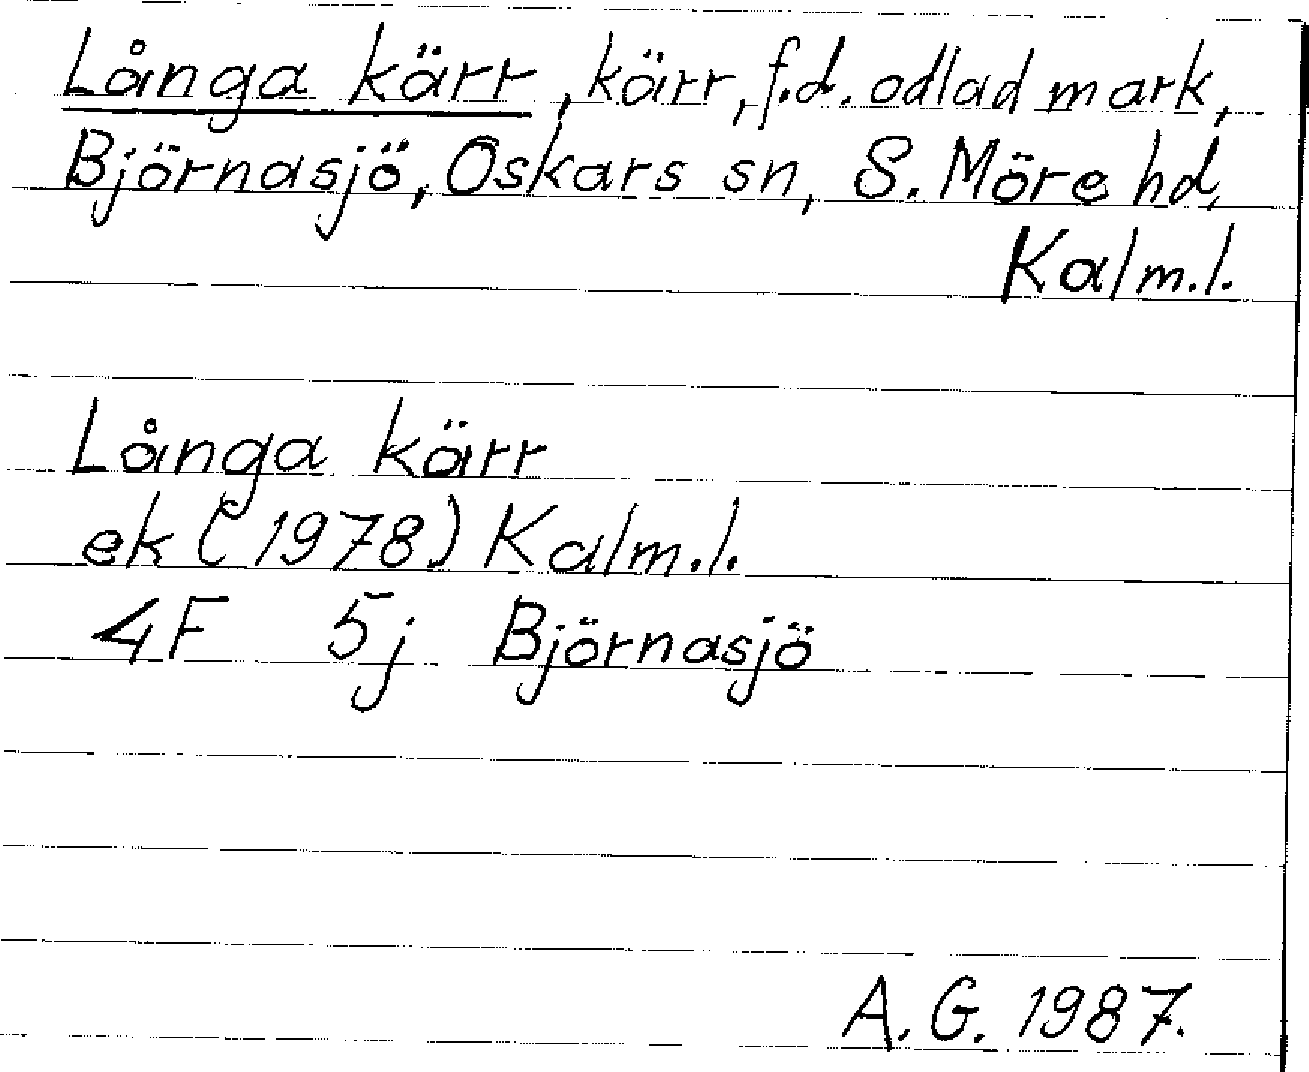 Långa kärr, kärr, f.d. odlad mark,
Björnasjö, Oskars sn, S. Möre hd,
Kalm.l.
Långa kärr
ek (1978) Kalm.l.
4F 5j Björnasjö
A.G. 1987.